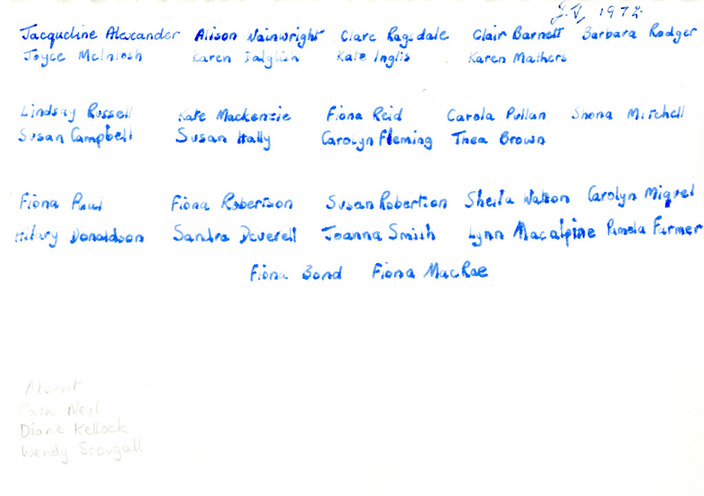 J.T, 1972
Jacqueline Alexander Alison Wainwright Clare Ragsdale Clair Barnett Barbara Rodger
Joyce McIntosh Karen Dalglish Kate Inglis Karen Mathers
Lindsay Russell Kate Mackenzie Fiona Reid Carola Pullan Shona Mitchell
Susan Campbell Susan Hally Carolyn Fleming Thea Brown
Fiona Paul Fiona Robertson Susan Robertson Sheila Watson Carolyn Miquel
Hilary Donaldson Sandra Deverell Joanna Smith Lynn Macalpine Pamela Farmer
Fiona Bond Fiona MacRae
Absent
Cath Neil
Diane Kellock
Wendy Scougall